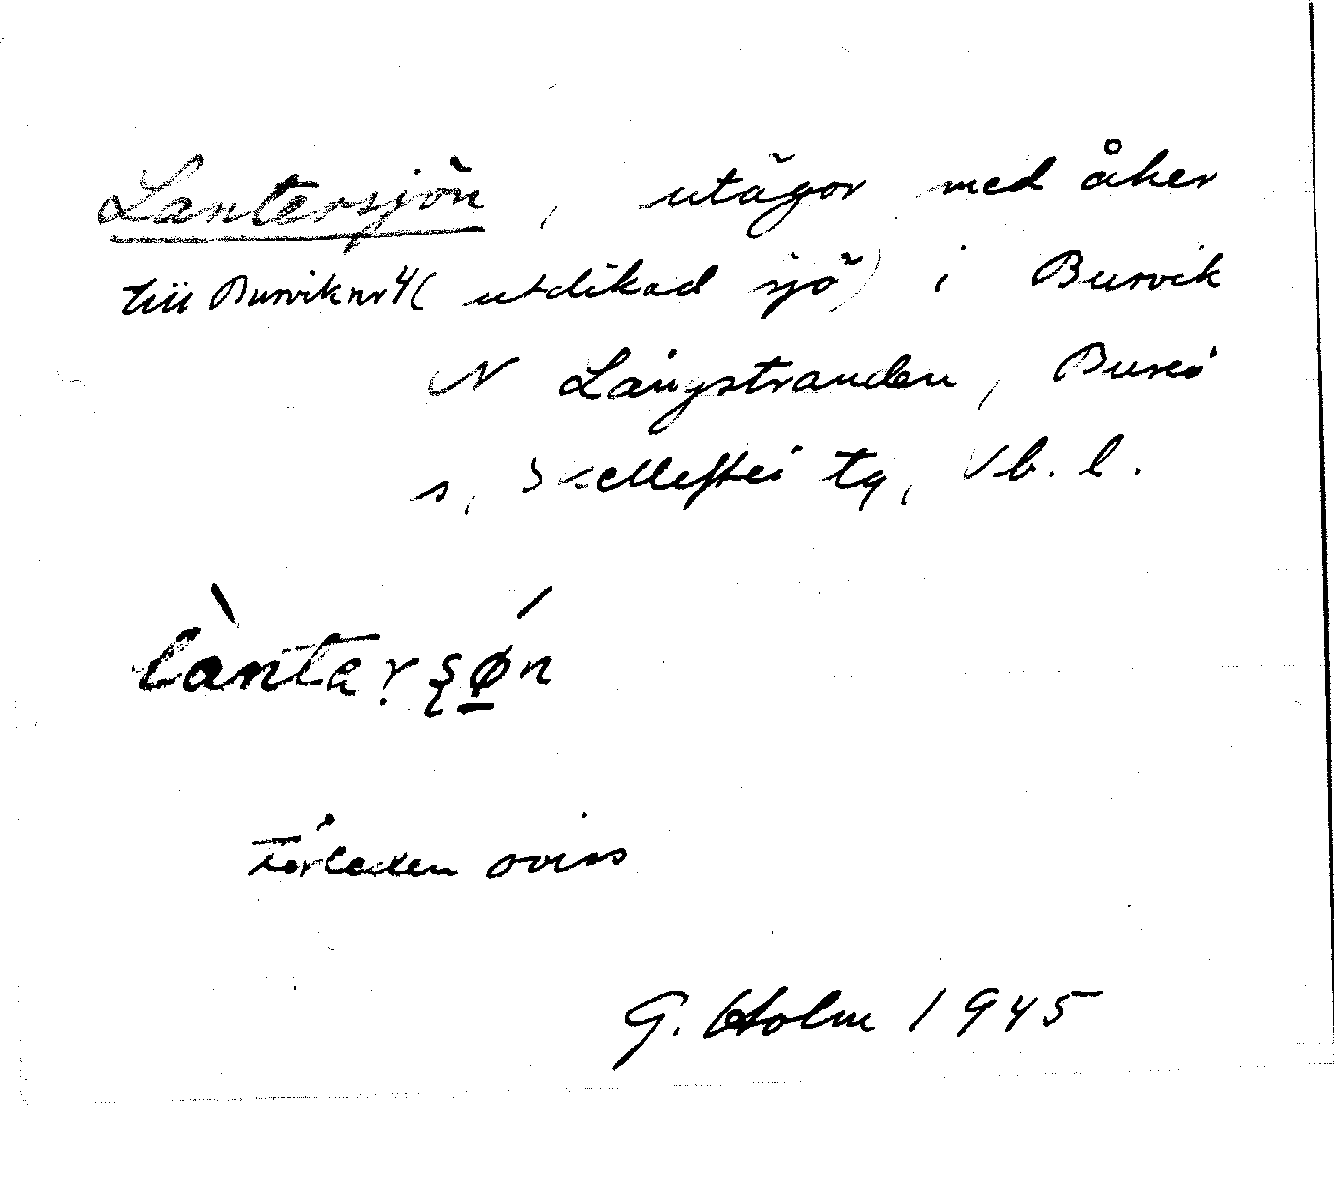 Lantersjön, utägor med åker
till Burvik nr 4 (utdikad sjö) i Burvik
N Långstranden, Bureå
s, Skellefteå tg, Vb. l.
làntạr ʂǿn
förleden oviss
G. Holm 1945